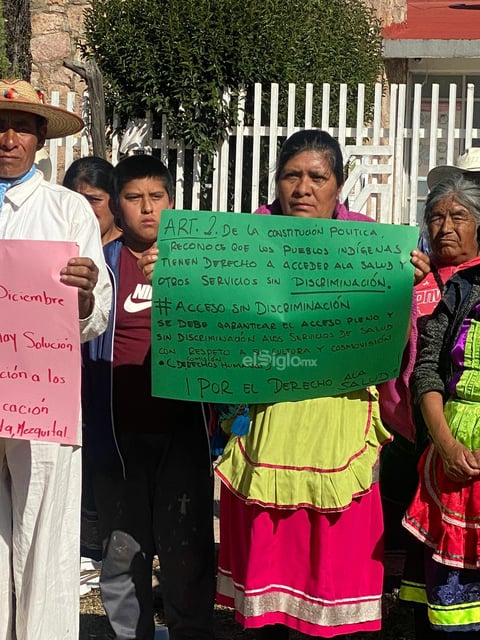 ART. 2. DE LA CONSTITUCIÓN POLITICA,
RECONOCE QUE LOS PUEBLOS INDÍGENAS
TIENEN DERECHO A ACCEDER ALA SALUD Y
OTROS SERVICIOS SIN DISCRIMINACIÓN.
# ACCESO SIN DISCRIMINACIÓN
SE DEBE GARANTICAR EL ACCESO PLENO Y
SIN DISCRIMINACIÓN A LOS SERVICIOS DE SALUD
CON RESPETO A SU CULTURA Y COSMOVISIÓN
• (COMISIÓN DERECHOS HUMANOS
¡ POR EL DERECHO ALA SALUD
elSiglo.mx
Diciembre
ay Solución
ción a los
cación
da, Mezquital